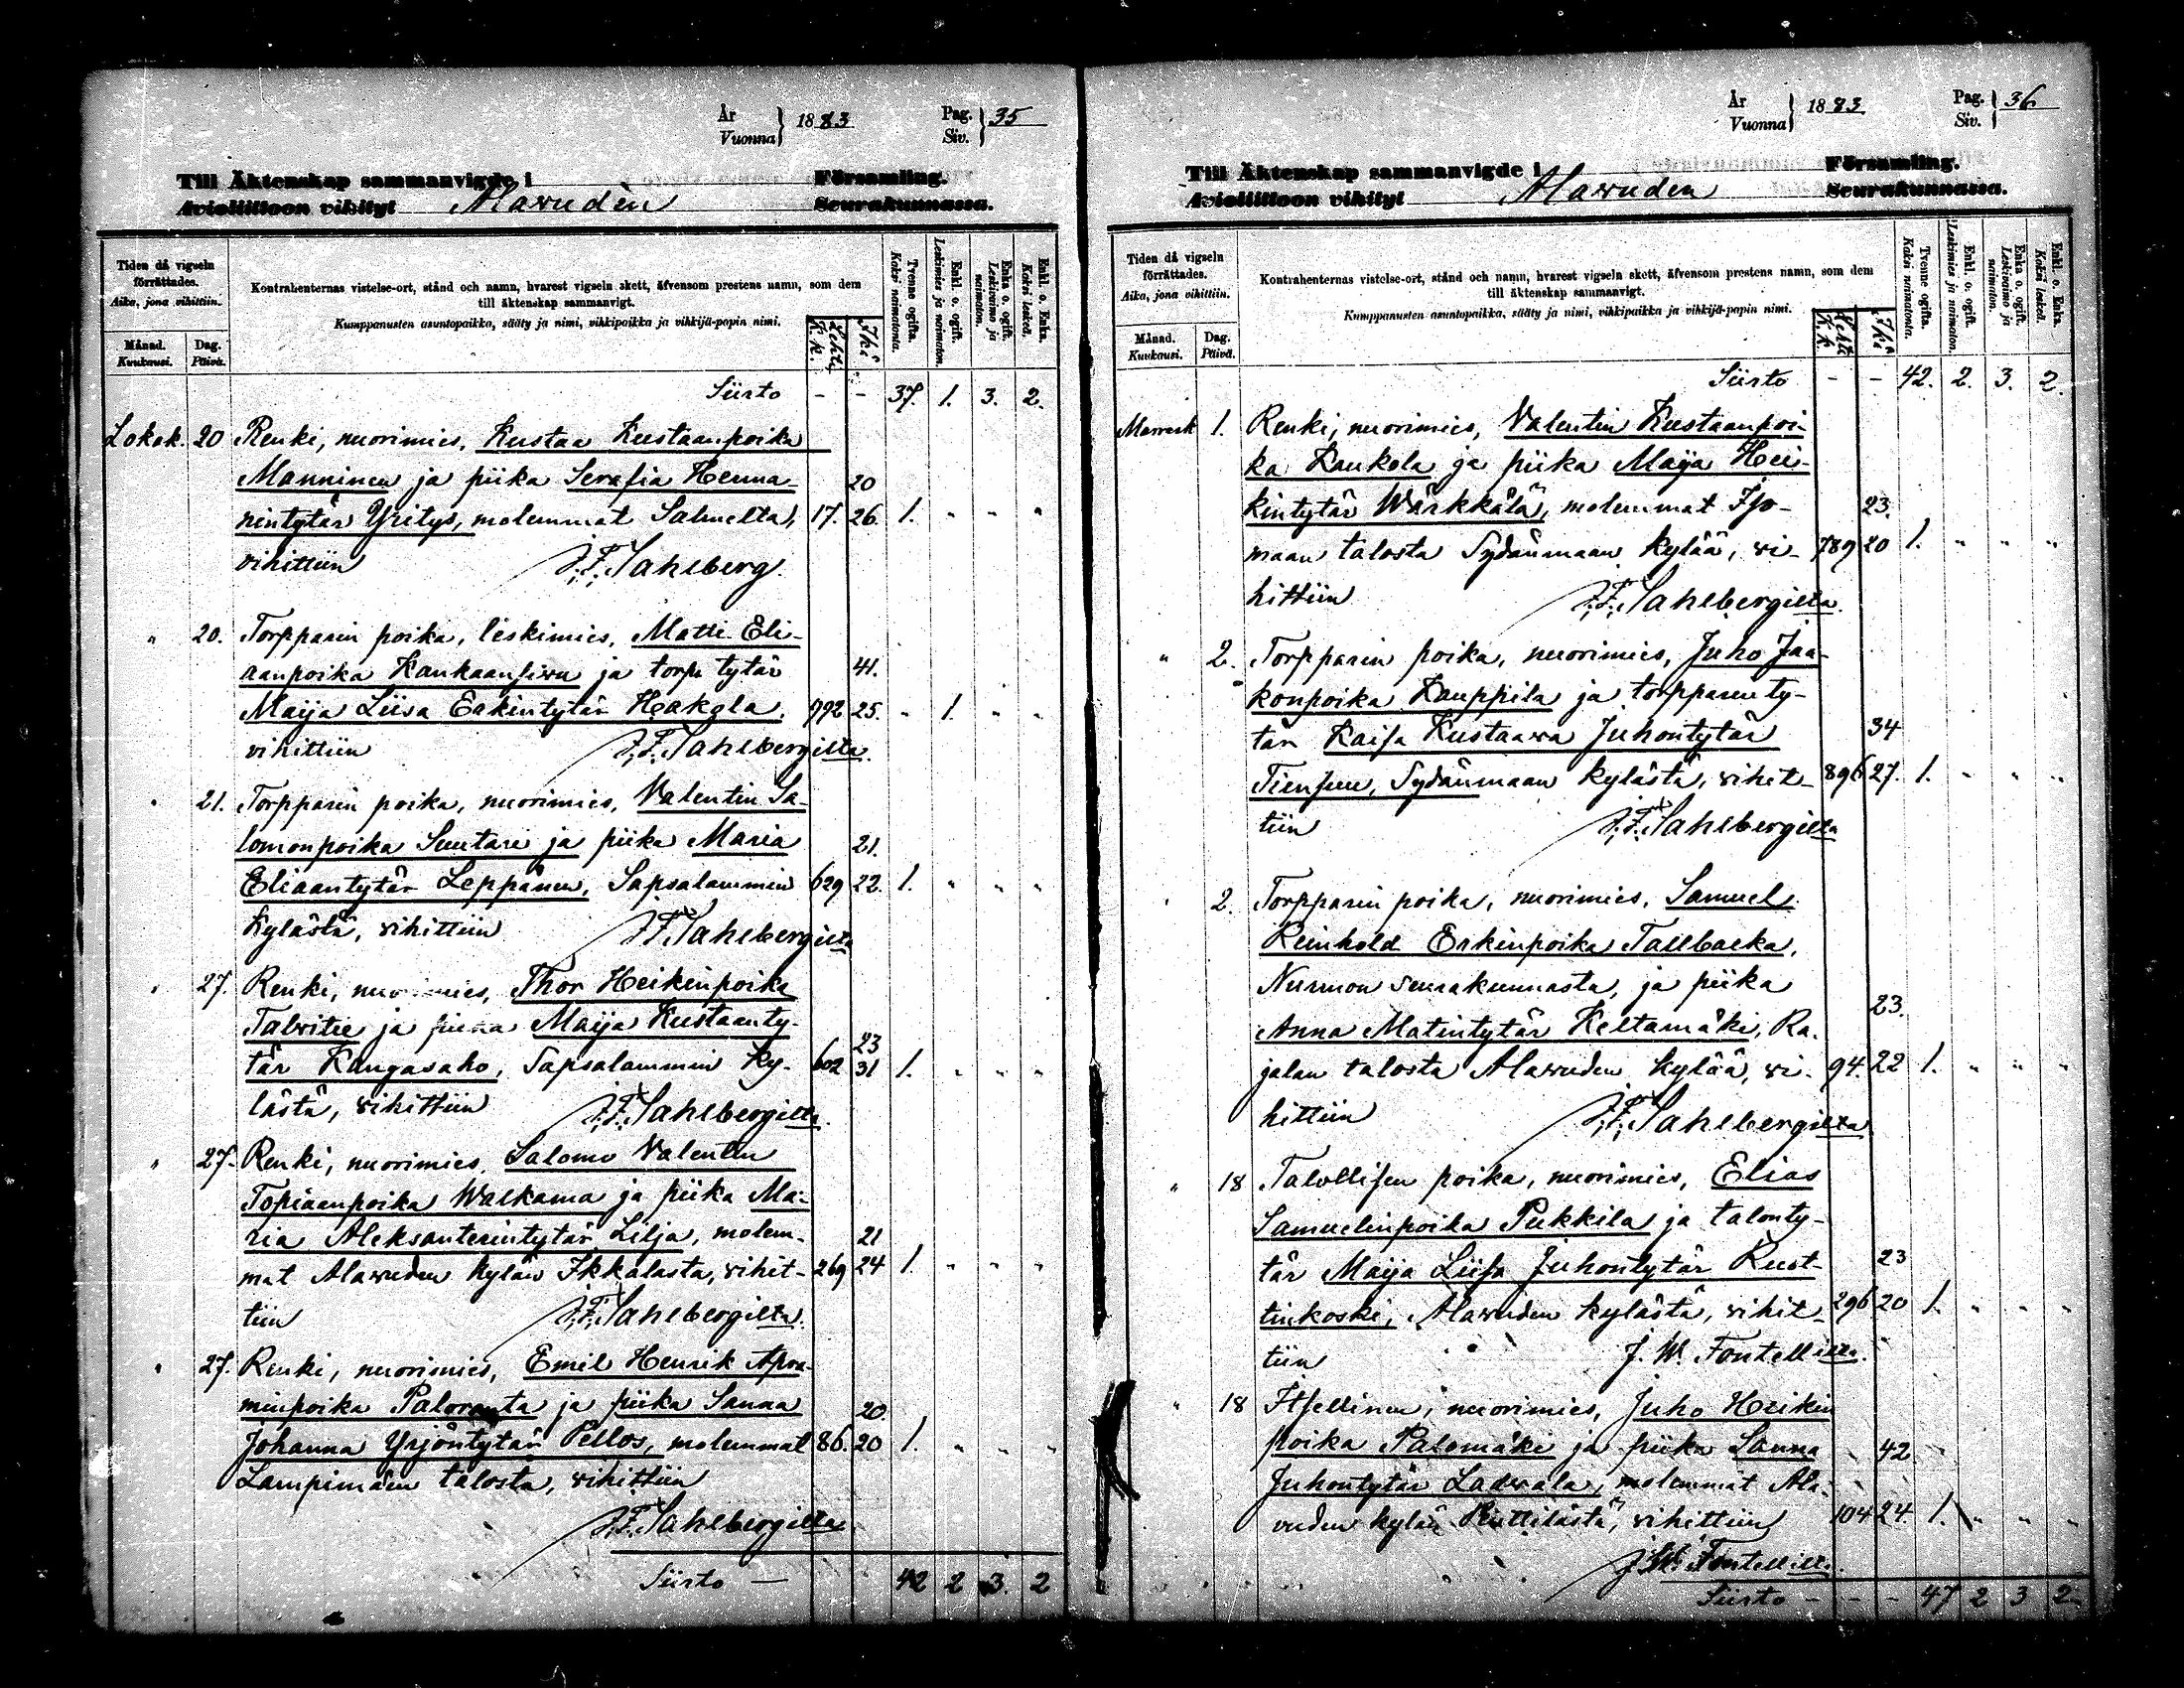 År
Vuonna } 1883
Pag.
Siv. } 35
Till Äktenskap sammanvigde i Församling.
Avioliittoon vihityt Alavuden Seurakunnassa.
Tiden då vigseln förrättades.
Aika, jona vihittiin.
Månad.
Kuukausi.
Dag.
Päivä.
Kontrahenternas vistelse-ort, stånd och namn, hvarest vigseln skett, äfvensom prestens namn, som dem
till äktenskap sammanvigt.
Kumppanusten asuntopaikka, sääty ja nimi, vihkipaikka ja vihkijä-papin nimi.
K.k. Lehti
Ikä
Tvenne ogifta.
Kaksi naimatonta.
Enkl. o. ogift.
Leskimies ja naimaton.
Enka o. ogift.
Leskivaimo ja naimaton.
Enkl. o. Enka.
Kaksi leskeä.
Siirto - - 37. 1. 3. 2.
Lokak. 20 Renki, nuorimies, Kustaa Kustaanpoika
Manninen ja piika Serafia Henna 20
nintytär Yritys, molemmat Salmelta, 17. 26. 1. " " "
vihittiin J. F. Sahlberg.
" 20. Torpparin poika, leskimies, Matti Eli-
aanpoika Kaukaansivu ja torp. tytär 41.
Maija Liisa Erkintytär Hakola, 792 25. " 1. " "
vihittiin J. F. Sahlbergilta.
" 21. Torpparin poika, nuorimies, Valentin Sa-
lomonpoika Suutari ja piika Maria 21.
Eliaantytär Leppänen, Sapsalammin 629 22. 1. " " "
Kylästä, vihittiin J. F. Sahlbergilta
" 27. Renki, nuorimies, Thor Heikinpoika
Talvitie ja piika Maija Kustaanty- 23
tär Kangasaho, Sapsalammin Ky- 602 31 1. " " "
lästä, vihittiin J. F. Sahlbergilta.
" 27. Renki, nuorimies, Salomo Valentin
Topiaanpoika Walkama ja piika Ma-
ria Aleksanterintytär Lilja, molem- 21
mat Alavuden kylän Ikkalasta, vihit- 269 24 1. " " "
tiin J. F. Sahlbergilta.
" 27. Renki, nuorimies, Emil Henrik Apra-
minpoika Paloranta ja piika Sanna 20.
Johanna Yrjöntytär Pellos, molemmat 86. 20 1. " " "
Lampimäen talosta, vihittiin
J. F. Sahlbergilta
Siirto — 42 2 3. 2
År
Vuonna } 1883
Pag.
Siv. } 36
Till Äktenskap sammanvigde i Församling.
Avioliittoon vihityt Alavuden Seurakunnassa.
Tiden då vigseln förrättades.
Aika, jona vihittiin.
Månad.
Kuukausi.
Dag.
Päivä.
Kontrahenternas vistelse-ort, stånd och namn, hvarest vigseln skett, äfvensom prestens namn, som dem
till äktenskap sammanvigt.
Kumppanusten asuntopaikka, sääty ja nimi, vihkipaikka ja vihkijä-papin nimi.
K.k. Lehti
Ikä
Tvenne ogifta.
Kaksi naimatonta.
Enkl. o. ogift.
Leskimies ja naimaton.
Enka o. ogift.
Leskivaimo ja naimaton.
Enkl. o. Enka.
Kaksi leskeä.
Siirto - - 42. 2. 3. 2.
Marrask 1. Renki, nuorimies, Valentin Kustaanpoi-
ka Kaukola ja piika Maija Hei-
kintytär Wärkkälä, molemmat Iso- 23.
maan talosta Sydänmaan kylää, vi- 789 20 1. " " "
hittiin J. F. Sahlbergilta.
" 2. Torpparin poika, nuorimies, Juho Jaa-
konpoika Kauppila ja torpparin ty-
tär Kaisa Kustaava Juhontytär 34
Tiensuu, Sydänmaan kylästä, vihit- 896 27. 1. " " "
tiin J. F. Sahlbergilta
" 2. Torpparin poika, nuorimies, Samuel
Reinhold Erkinpoika Tallbacka,
Nurmon seurakunnasta, ja piika
Anna Matintytär Keltamäki, Ra- 23.
jalan talosta Alavuden kylää, vi- 94. 22 1. " " "
hittiin J. F. Sahlbergilta
" 18 Talollisen poika, nuorimies, Elias
Samuelinpoika Pukkila ja talonty-
tär Maija Liisa Juhontytär Rust- 23
tinkoski, Alavuden kylästä, vihit- 296 20 1. " " "
tiin J. W. Fontellilta.
" 18 Itsellinen, nuorimies, Juho Heikin
poika Palomäki ja piika Sanna 42
Juhontytär Ladvala, molemmat Ala-
vuden kylän Pinttilästä, vihittiin 104 24. 1. " " "
J. W. Fontellilta.
Siirto - - - 47 2 3 2